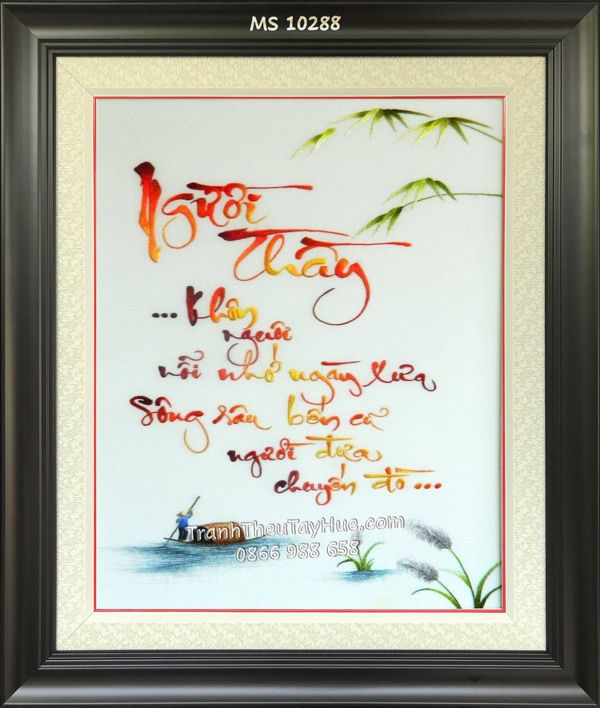 MS 10288
Người
Thầy
... Khôn
nguôi
nỗi nhớ ngày xưa
Sông sâu bến cũ
người đưa
chuyến đò...
TranhTheuTayHue.com
0866 988 658